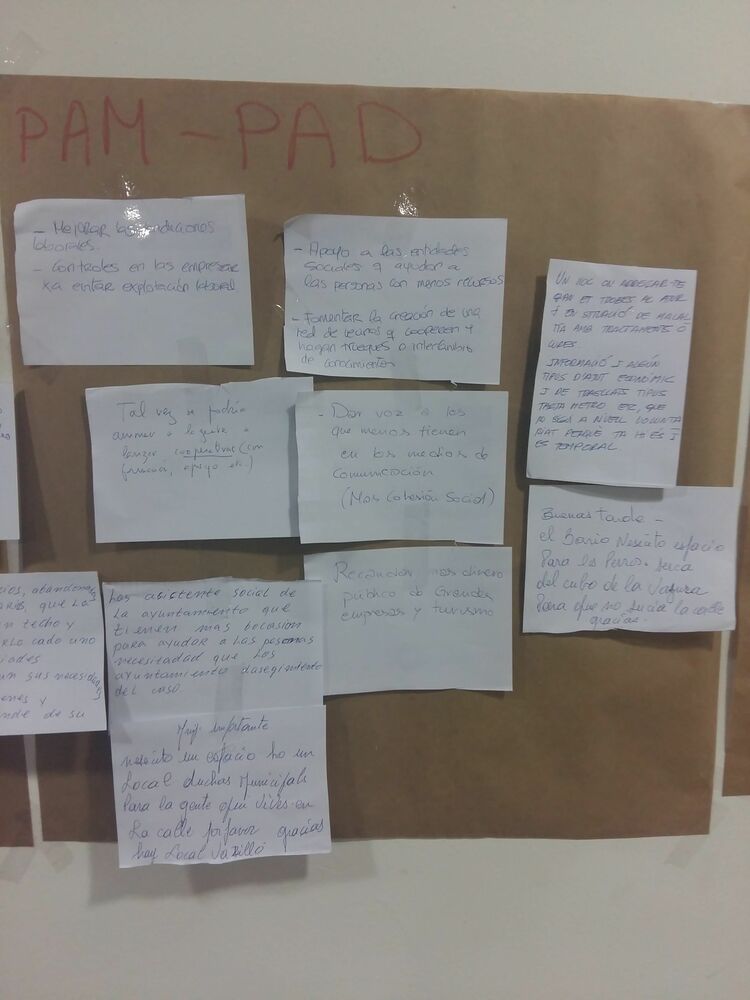 PAM - PAD
- Mejorar las condiciones
laborales.
- Controles en las empresas
xa evitar explotación laboral
- Apoyo a las entidades
sociales q ayudan a
las personas con menos recursos
- Fomentar la creación de una
red de vecinos q cooperen y
hagan trueques o intercambio
de conocimientos
UN LLOC ON
QUAN ET TROBES AL ATUR
I EN SITUACIÓ DE MALAL
TIA AMB TRACTAMENTS O
CURES.
INFORMACIÓ I ALGÚN
TIPUS D'AJUT ECONÒMIC
I DE TRASLLATS TIPUS
TARJA METRO ETC, QUE
NO SIGUI A NIVELL VOLUNTA
RIAT PERQUE JA HI ÉS I
ES TEMPORAL.
Tal vez se podría
animar a la gente a
lanzar cooperativas (con
formación, apoyo etc.)
- Dar voz a los
que menos tienen
en los medios de
comunicación
(Mas Cohesión Social)
Buenas tarde -
el Barrio Nesesito espacio
Para los Perros. serca
del cubo de la Vasura
Para que no sucia la calle
gracias.
Recaudar mas dinero
público de Grandes
empresas y turismo
cios, abandona
que la
un techo y
cada uno
dades
un sus necesidades
enes y
nde de su
Los asistente social de
La ayuntamiento que
tienen mas bocasion
para ayudar a las pesonas
necesitadad que los
ayuntamiendo dasegimiento
del caso
Muy importante
nesesito un espacio ho un
Local duchas Municipals
Para la gente que vives en
La calle porfavor gracias
hay Local Vasilló